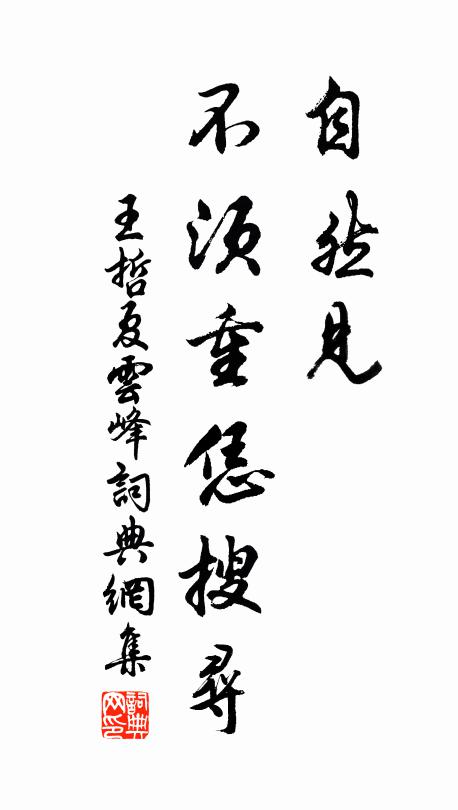 自然見
不須重恁搜尋
王哲夏雲峰詞典網集
詞典网印